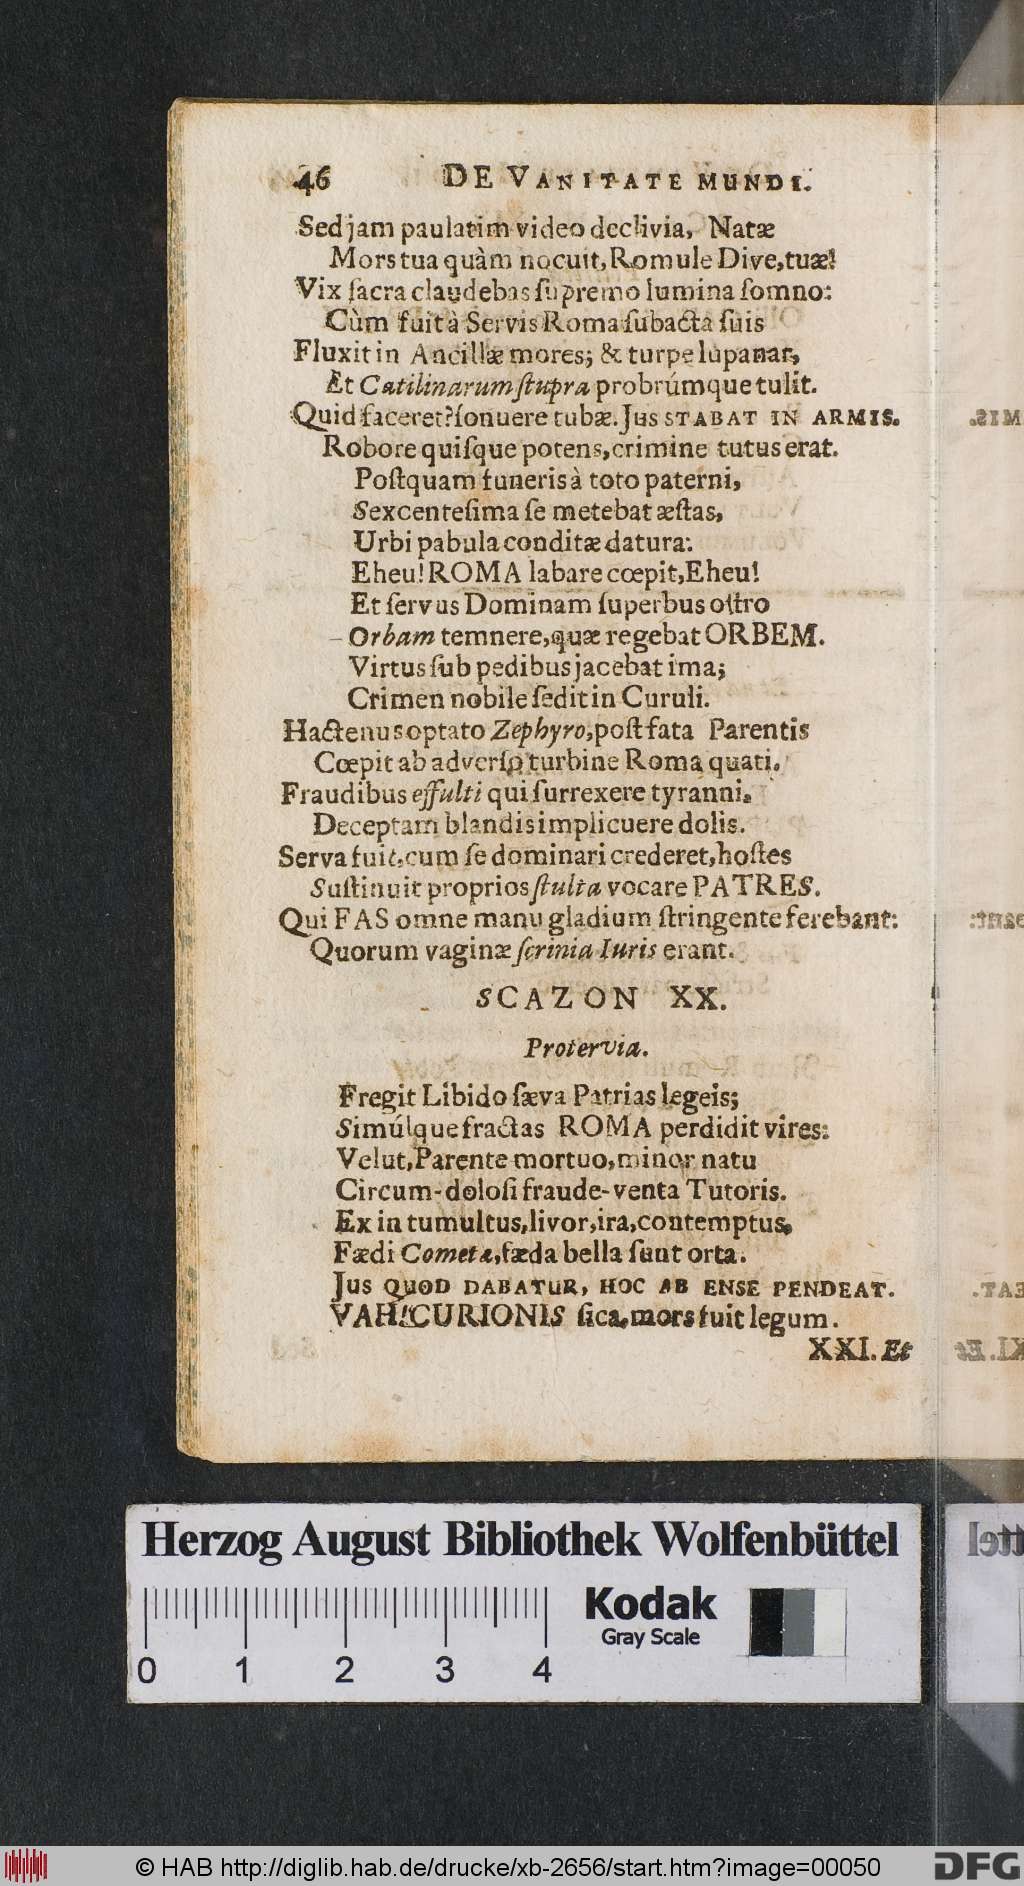 46 DE VANITATE MUNDI.
Sed jam paulatim video declivia, Natæ
Mors tua quàm nocuit, Romule Dive, tuæ!
Vix ſacra claudebas ſupremo lumina ſomno:
Cùm fuit à Servis Roma ſubacta ſuis
Fluxit in Ancillæ mores; & turpe lupanar,
Et Catilinarum ſtupra probrúmque tulit.
Quid faceret? ſonuere tubæ. Jus STABAT IN ARMIS.
Robore quiſque potens, crimine tutus erat.
Poſtquam funeris à toto paterni,
Sexcenteſima ſe metebat æſtas,
Urbi pabula conditæ datura:
Eheu! ROMA labare cœpit, Eheu!
Et ſervus Dominam ſuperbus oſtro
Orbam temnere, quæ regebat ORBEM.
Virtus ſub pedibus jacebat ima;
Crimen nobile ſedit in Curuli.
Hactenus optato Zephyro, poſt fata Parentis
Cœpit ab adverſo turbine Roma quati.
Fraudibus effulti qui ſurrexere tyranni.
Deceptam blandis implicuere dolis.
Serva fuit, cum ſe dominari crederet, hoſtes
Suſtinuit proprios ſtulta vocare PATRES.
Qui FAS omne manu gladium ſtringente ferebant:
Quorum vaginæ ſcrinia Iuris erant.
SCAZON XX.
Protervia.
Fregit Libido ſæva Patrias legeis;
Simúlque fractas ROMA perdidit vires:
Velut, Parente mortuo, minor natu
Circum-doloſi fraude-venta Tutoris.
Ex in tumultus, livor, ira, contemptus,
Fædi Cometæ, fæda bella ſunt orta.
JUS QUOD DABATUR, HOC AB ENSE PENDEAT.
VAH! CURIONIS ſica, mors fuit legum.
XXI. Et
Herzog August Bibliothek Wolfenbüttel
Kodak
Gray Scale
0 1 2 3 4
© HAB http://diglib.hab.de/drucke/xb-2656/start.htm?image=00050
DFG